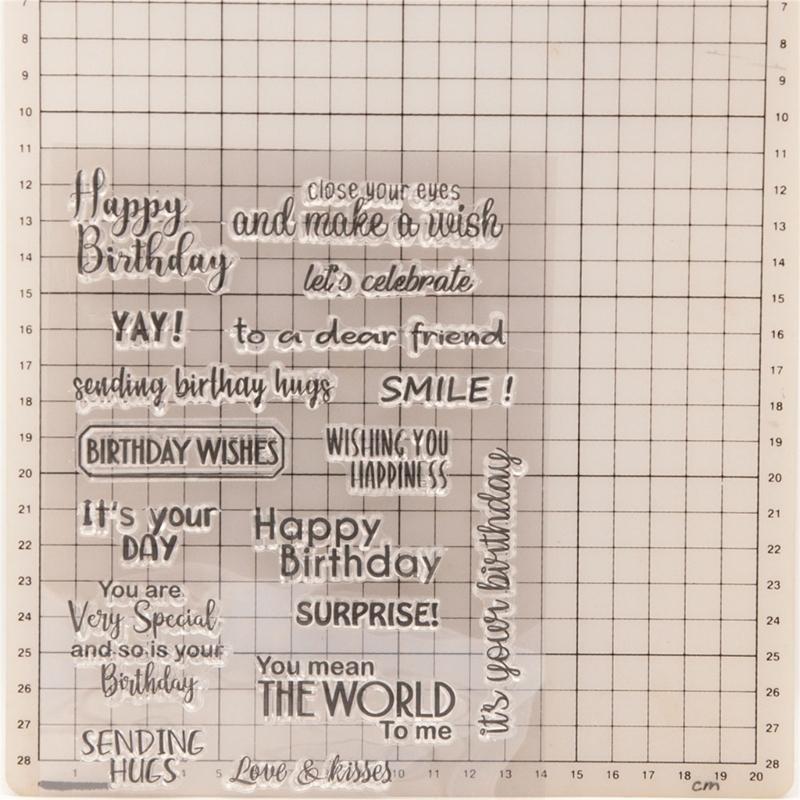 7 7
8 8
9 9
10 10
11 11
12 12
13 13
14 14
15 15
16 16
17 17
18 18
19 19
20 20
21 21
22 22
23 23
24 24
25 25
26 26
27 27
28 28
Happy
Birthday
close your eyes
and make a wish
let's celebrate
YAY!
to a dear friend
sending birthay hugs
SMILE !
BIRTHDAY WISHES
WISHING YOU
HAPPINESS
it's your birthday
It's your
DAY
Happy
Birthday
You are
Very Special
and so is your
Birthday
SURPRISE!
You mean
THE WORLD
To me
SENDING
HUGS
Love & kisses
4 5 10 11 12 13 14 15 16 17 18 19 20
cm